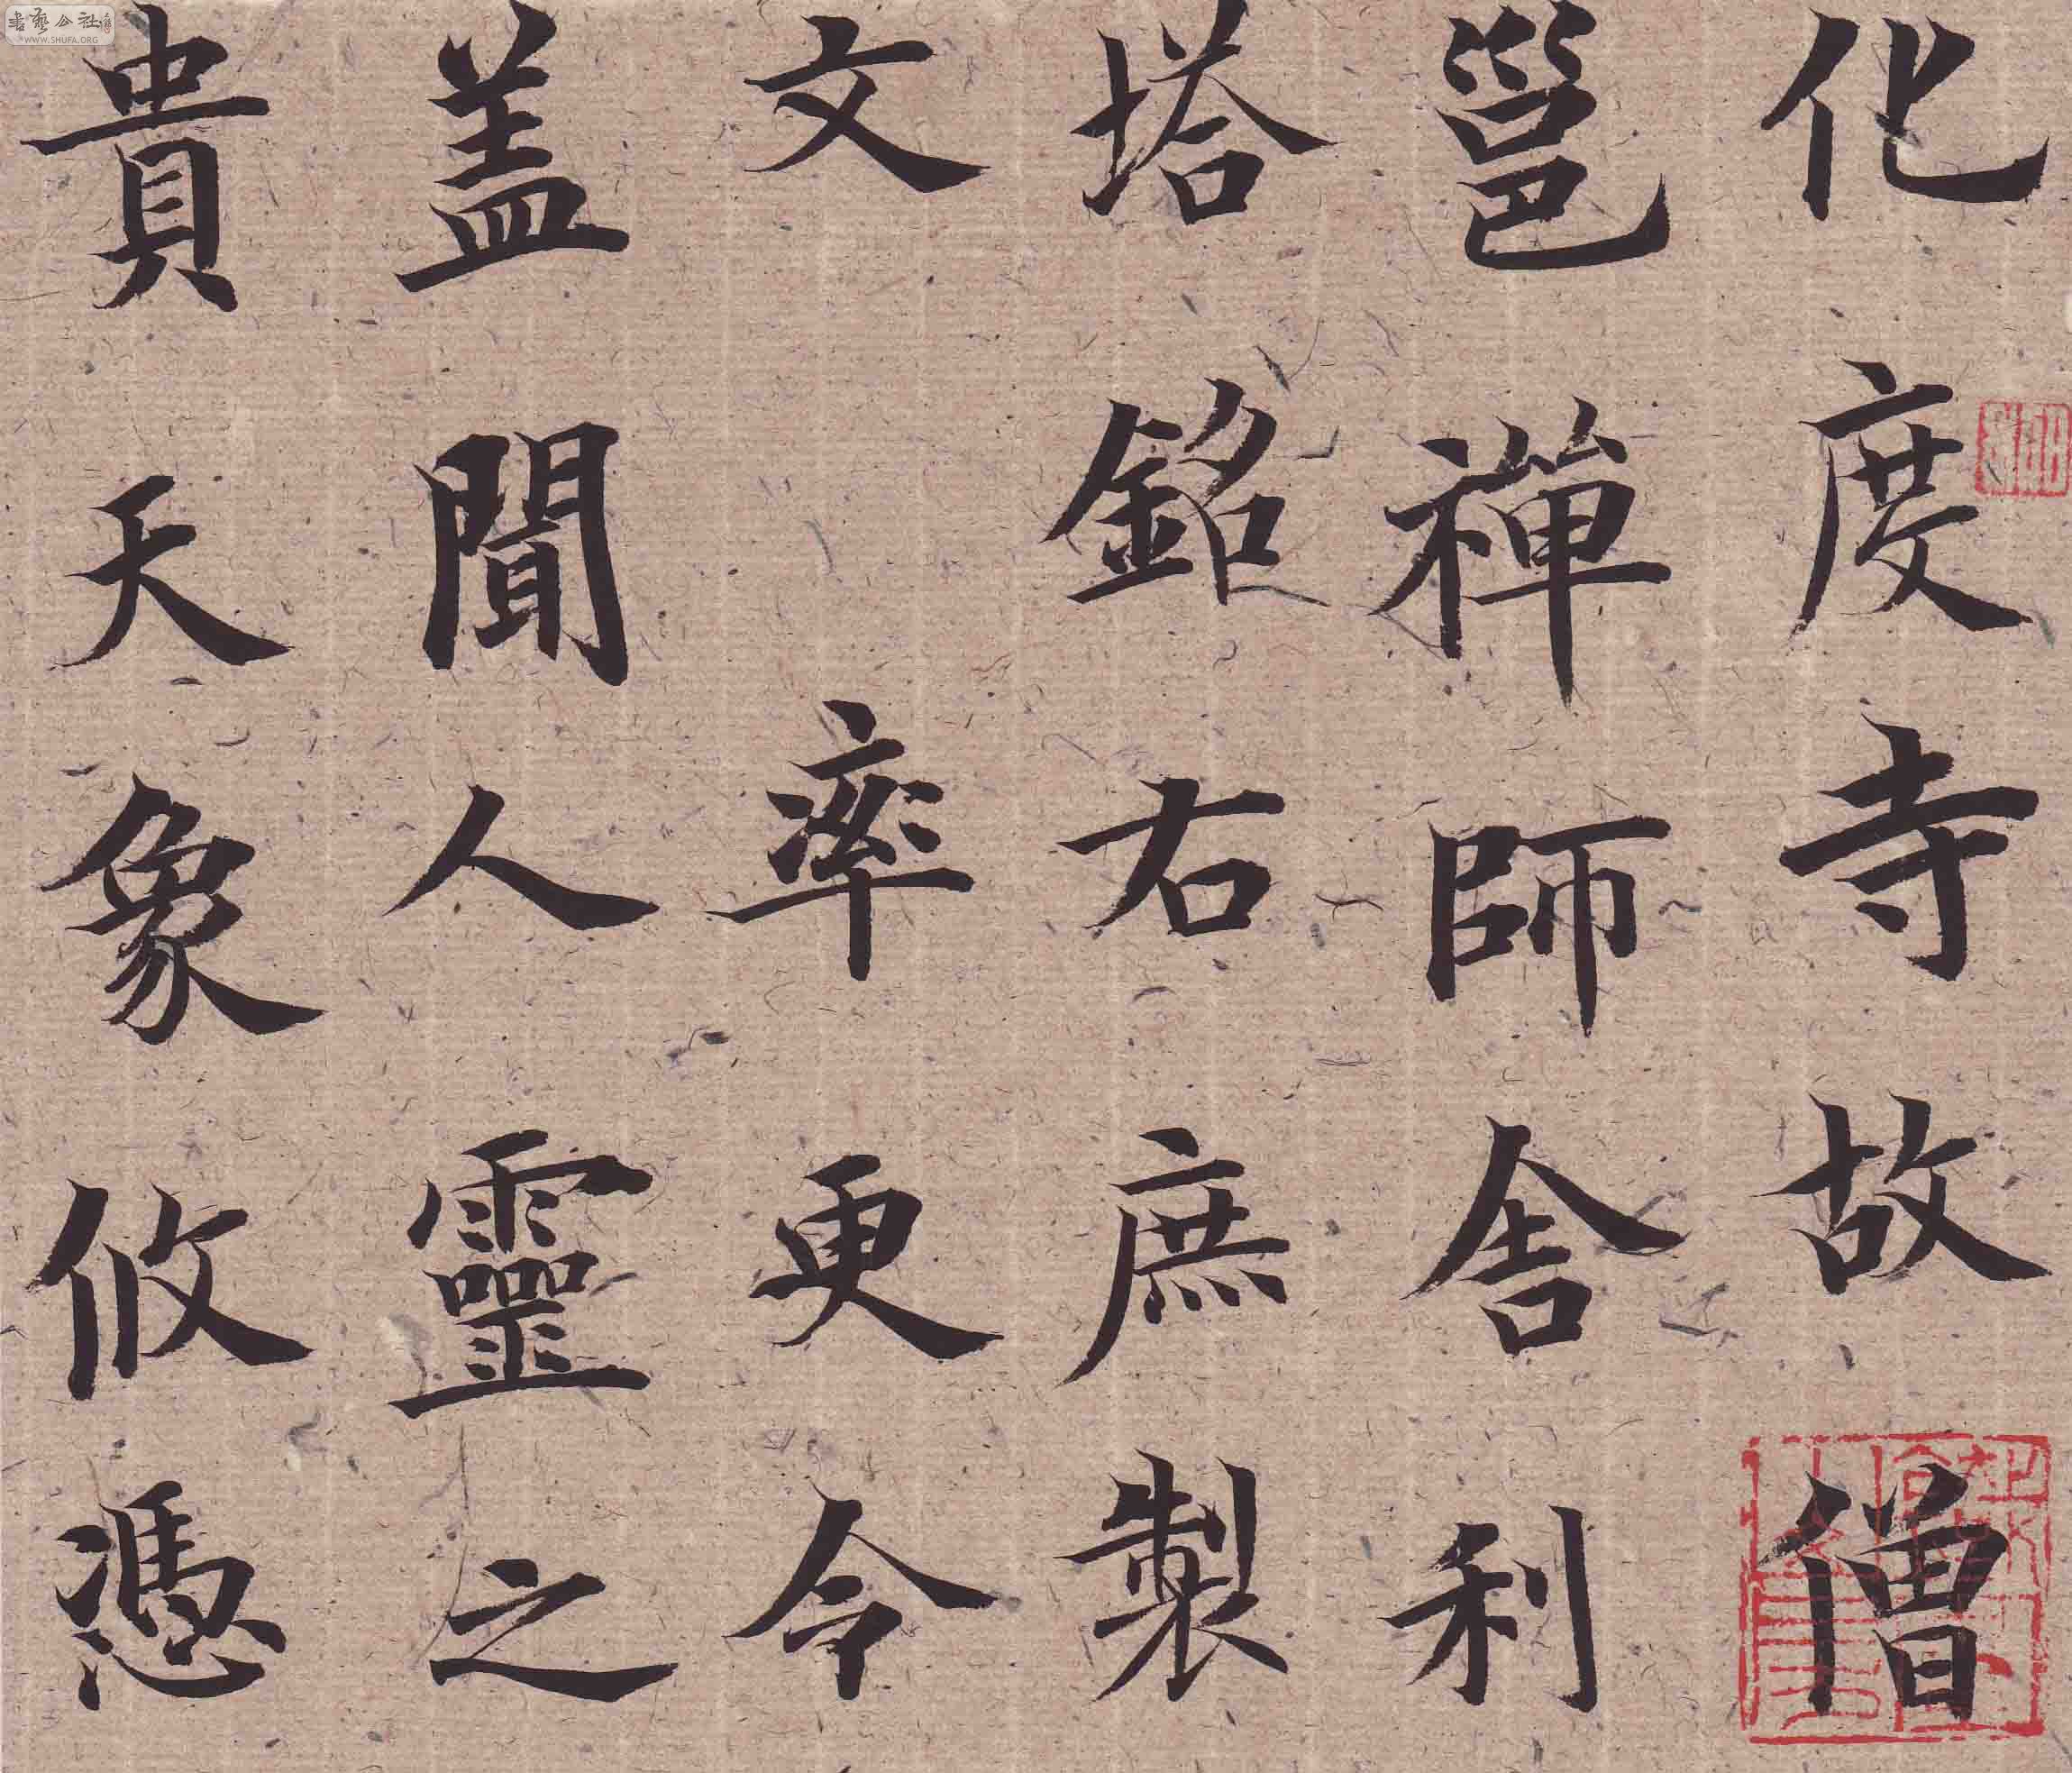 化度寺故僧
邕禪師舎利
塔銘右庶製
文 率更令
盖聞人靈之
貴天象攸憑
書藝公社
WWW.SHUFA.ORG